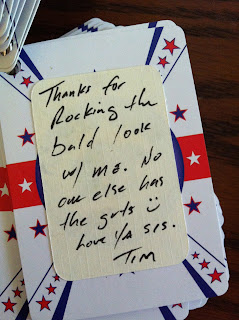 Thanks for
Rocking the
bald look
w/ me. No
one else has
the guts
Love YA SIS.
TIM